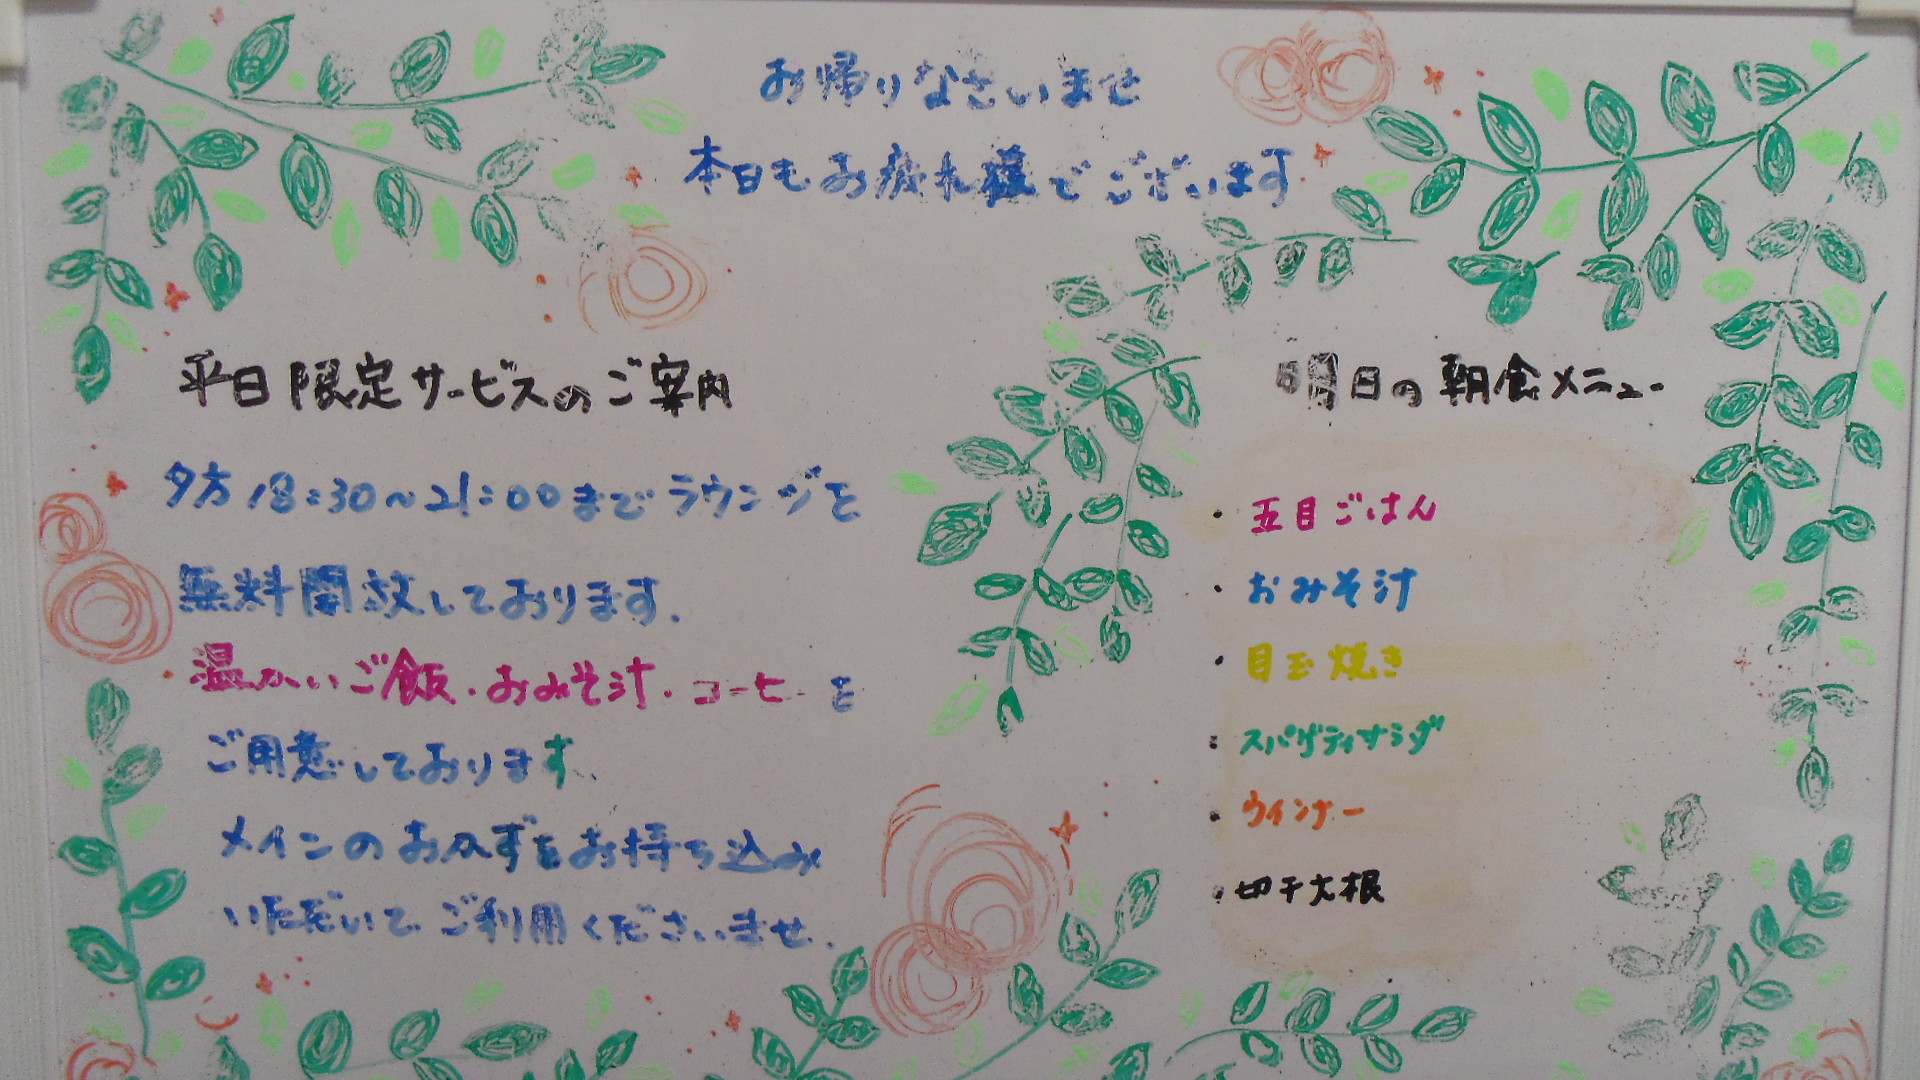 お帰りなさいませ
本日もお疲れ様でございます
平日限定サービスのご案内
夕方18:30～21:00までラウンジを
無料開放しております.
温かいご飯・おみそ汁・コーヒーを
ご用意しております、
メインのおかずをお持ち込み
いただいて ご利用くださいませ.
日の朝食メニュー
・五目ごはん
・おみそ汁
・目玉焼き
・スパゲティサラダ
・ウインナー
・切干大根